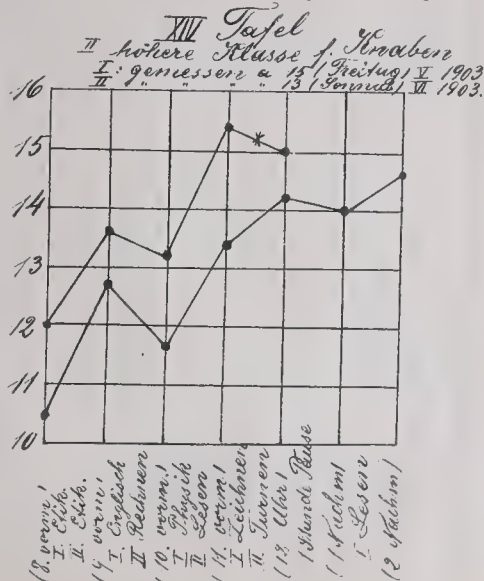 XIV Tafel
II höhere Klasse f. Knaben
I: gemessen a 15 (Freitag) V 1903
II: " " " " 13 (Sonnab) VI 1903.
16
15
14
13
12
11
10
(8. vorm)
I. Etik.
II. Etik.
(9. vorm)
I. Englisch
II Rechnen
(10. vorm)
I Physik
II Lesen
(11. vorm)
I Zeichnen
II Turnen
(12. Uhr)
1 Stunde Pause
(1 Nachm)
I Lesen
(2 Nachm)